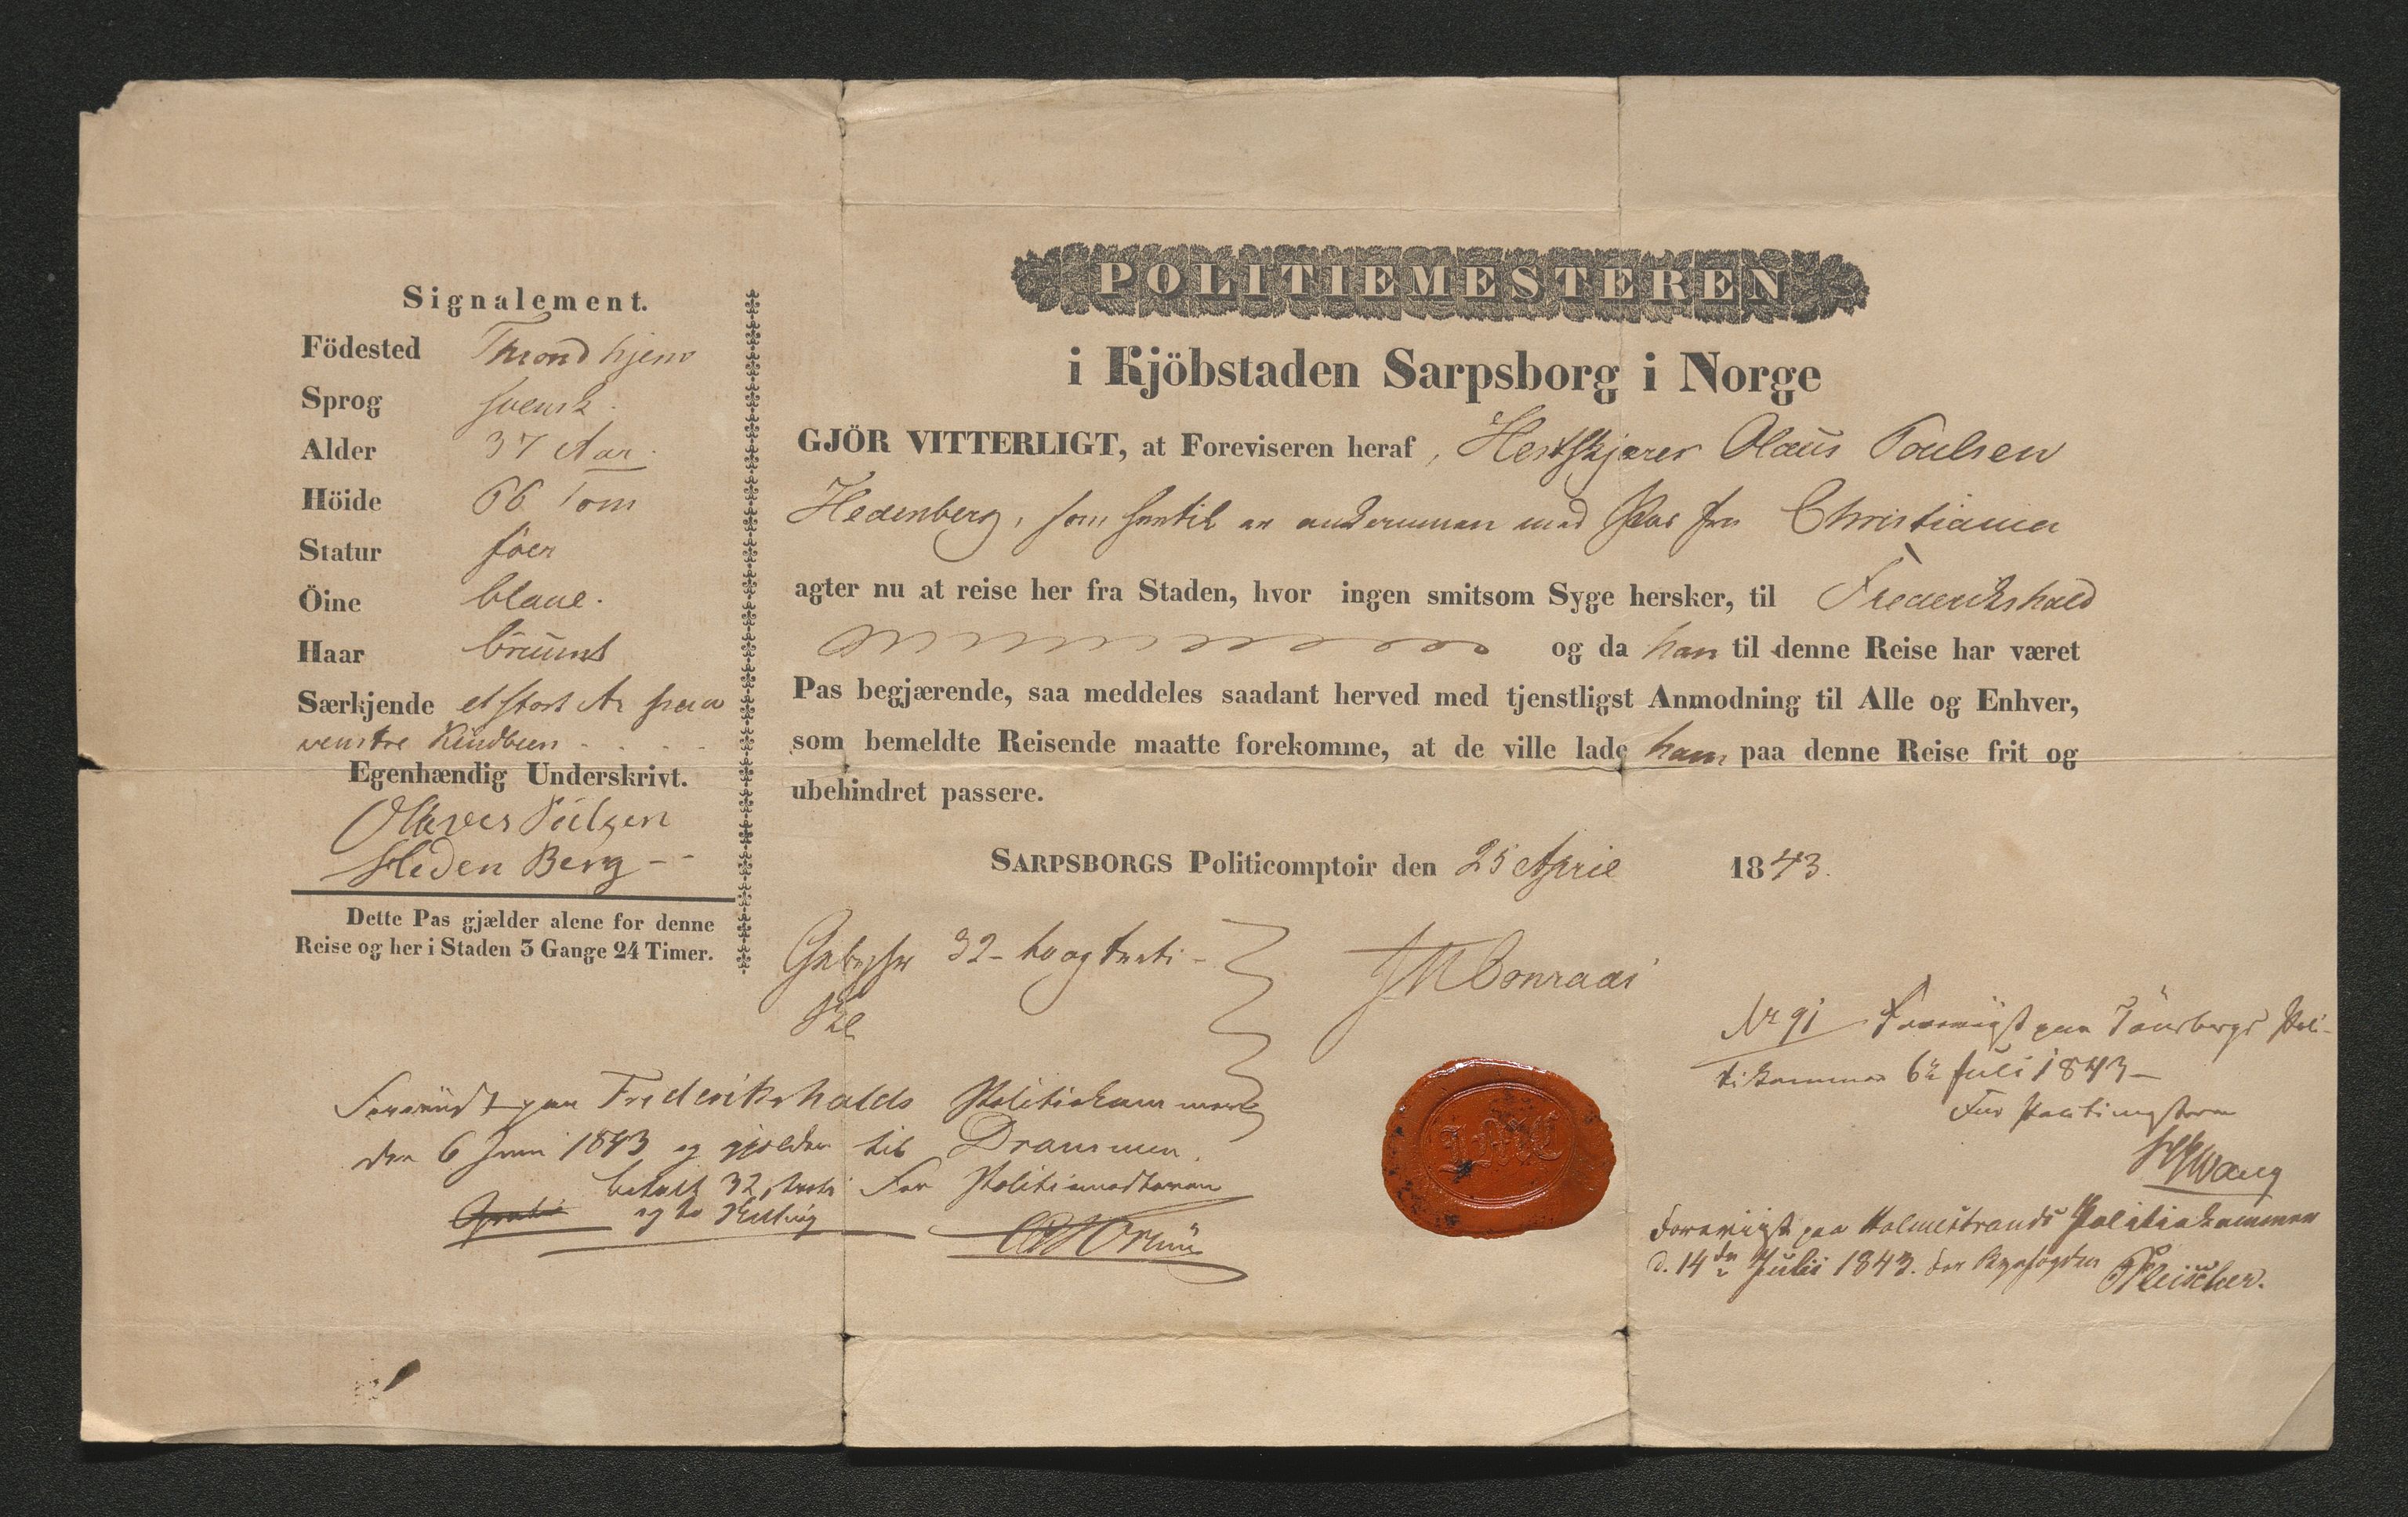 Signalement.
Födested Throndhjem
Sprog svensk.
Alder 37 Aar.
Höide 66 Tom
Statur föer
Öine blaae.
Haar bruunt
Særkjende et stort Ar paa
venstre Kindbeen - . . . -
Egenhændig Underskrivt.
Olaves Poulsen
Heden Berg - -
Dette Pas gjælder alene for denne
Reise og her i Staden 3 Gange 24 Timer.
POLITIEMESTEREN
i Kjöbstaden Sarpsborg i Norge
GJÖR VITTERLIGT, at Foreviseren heraf, Olaus Poulsen
Hedenberg, som hertil er ankommen med Pas fra Christiania
agter nu at reise her fra Staden, hvor ingen smitsom Syge hersker, til Frederikshald
og da han til denne Reise har været
Pas begjærende, saa meddeles saadant herved med tjenstligst Anmodning til Alle og Enhver,
som bemeldte Reisende maatte forekomme, at de ville lade ham paa denne Reise frit og
ubehindret passere.
SARPSBORGS Politicomptoir den 25 April 1843.
Gebyhr 32 - to og treti -
Skl
JM Conradi
Foreviist paa Frederikshalds Politiekammer
den 6 Juni 1843 og gjelder til Drammen.
betalt 32, treti For Politiemesteren
Gratis og to Skilling
No 91 Foreviist paa Tönsbergs Poli-
tikammer 6te Juli 1843 -
For Politimesteren
Wang
Foreviist paa Holmestrands Politiekammer
d. 14de Julii 1843. For Byefogden
Fleischer.